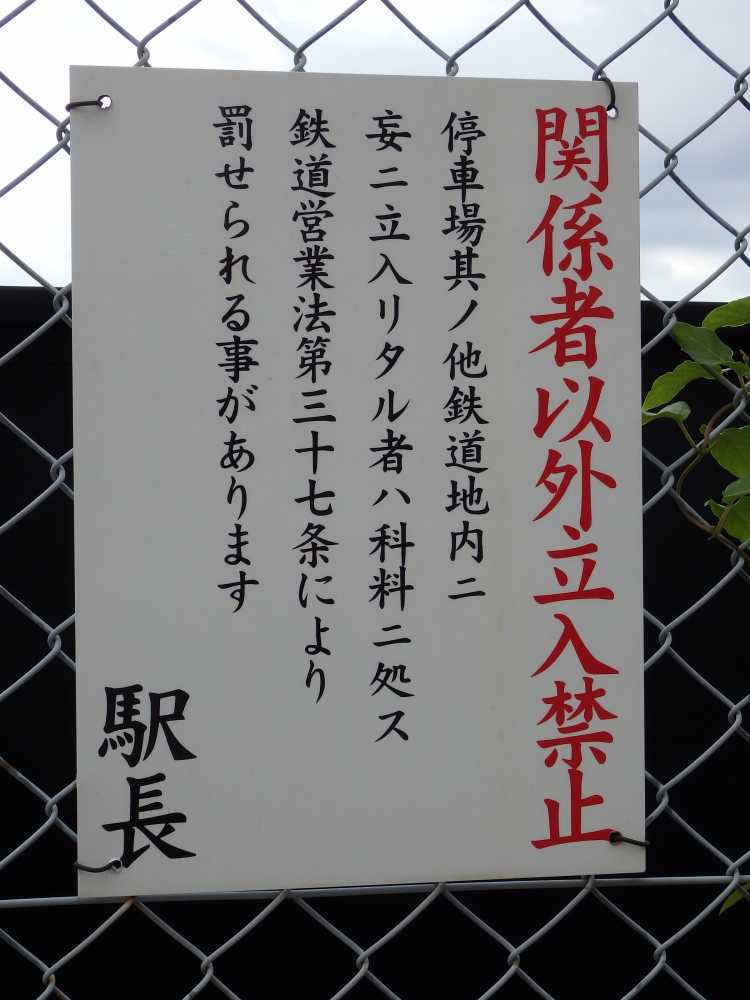 関係者以外立入禁止
停車場其ノ他鉄道地内ニ
妄ニ立入リタル者ハ科料ニ処ス
鉄道営業法第三十七条により
罰せられる事があります
駅長